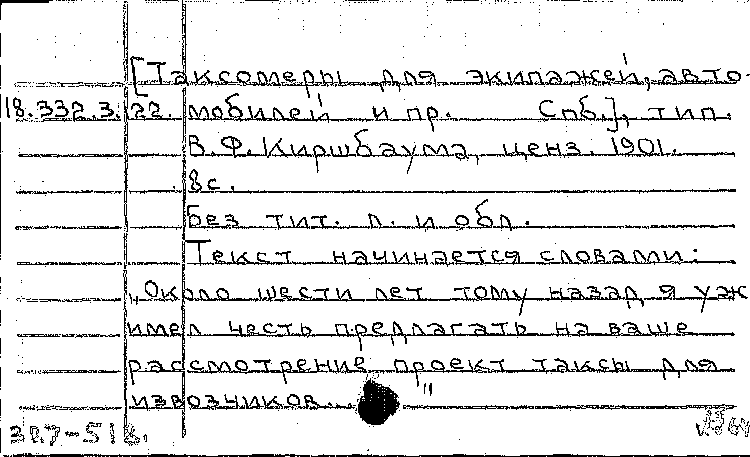 [Таксомеры для экипажей, авто-
18.332.3.22. мобилей и пр. Спб.], тип.
В.Ф. Киршбаума, ценз. 1901.
8с.
Без тит. л. и обл.
Текст начинается словами:
„Около шести лет тому назад я уж
имел честь предлагать на ваше
рассмотрение проект таксы для
извозчиков..."
327-518.